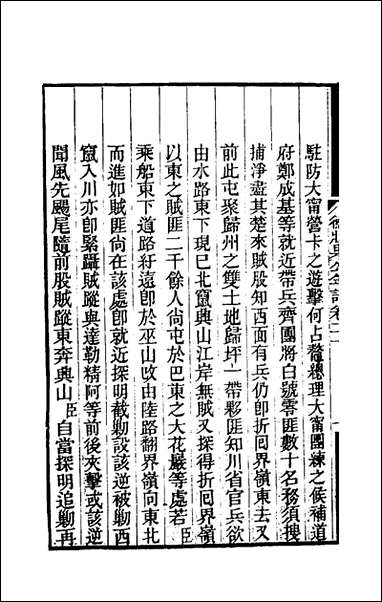 駐防大甯營卡之遊擊何占鼇總理大甯團練之候補道
府鄭成基等就近帶兵齊團將白號零匪數十名務須搜
捕淨盡其楚來賊股知西面有兵仍卽折回界嶺東去又
前此屯聚歸州之雙土地歸坪一帶夥匪知川省官兵欲
由水路東下現已北竄興山江岸無賊又探得折回界嶺
以東之賊匪二千餘人尙屯於巴東之大花嚴等處若臣
乘船東下道路紆遠卽於巫山改由陸路翻界嶺向東北
而進如賊匪尙在該處卽就近探明截勦設該逆被勦西
竄入川亦卽緊躡賊蹤與達勒精阿等前後夾擊或該逆
聞風先颺尾隨前股賊蹤東奔興山臣自當探明追勦再